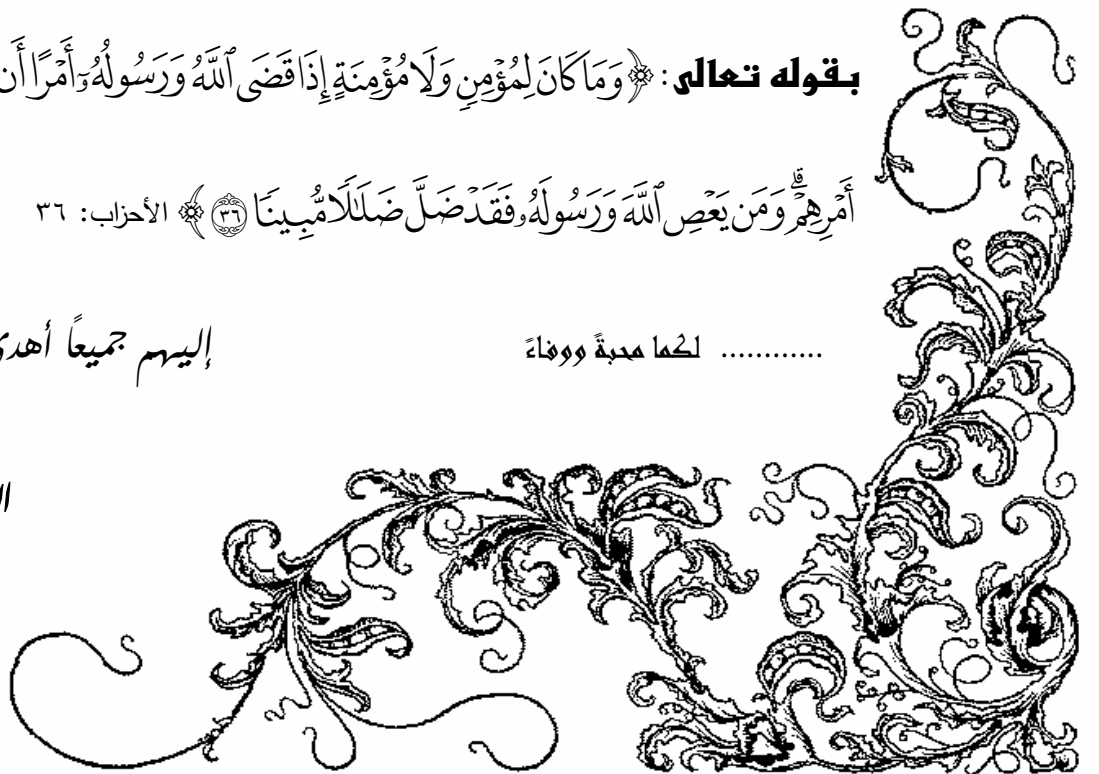 بقوله تعالى: ﴿ وَمَا كَانَ لِمُؤْمِنٍ وَلَا مُؤْمِنَةٍ إِذَا قَضَى ٱللَّهُ وَرَسُولُهُۥٓ أَمْرًا أَن
أَمْرِهِمْ ۗ وَمَن يَعْصِ ٱللَّهَ وَرَسُولَهُۥ فَقَدْ ضَلَّ ضَلَٰلًا مُّبِينًا ۝٣٦ ﴾ الأحزاب: ٣٦
............ لكما محبةً ووفاءً إليهم جميعاً